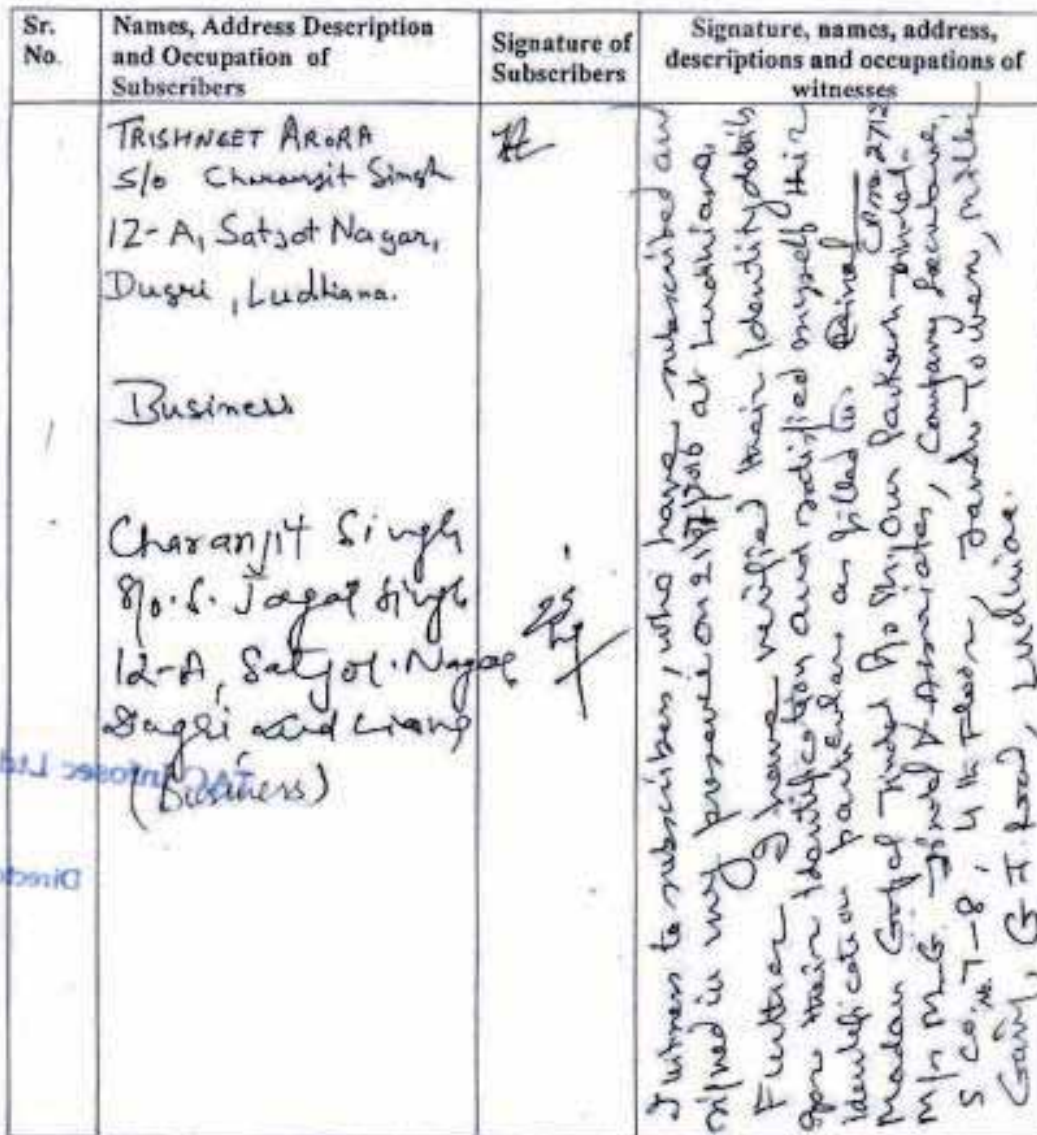 Sr.
No.
Names, Address Description
and Occupation of
Subscribers
Signature of
Subscribers
Signature, names, address,
descriptions and occupations of
witnesses
TRISHNEET ARORA
S/o Charanjit Singh
12-A, Satjot Nagar,
Dugri, Ludhiana.
Business
Charanjit Singh
S/o. S. Jagat Singh
12-A, Satjot. Nagar
Dugri Ludhiana
(Business)
TAC Infosec Ltd
Director
I witness to subscribers, who have subscribed and
signed in my presence on 21/7/2016 at Ludhiana,
Further I have verified their Identity details
for their Identification and satisfied myself their
identification particulars as filled in.
Madan Gopal Jindal S/o Sh. Om Parkash Jindal
M/s M.G. Jindal & Associates, Company Secretaries,
S CO. No. 7-8, 4th Floor, Jandu Tower, Miller
Ganj, G T Road, Ludhiana.